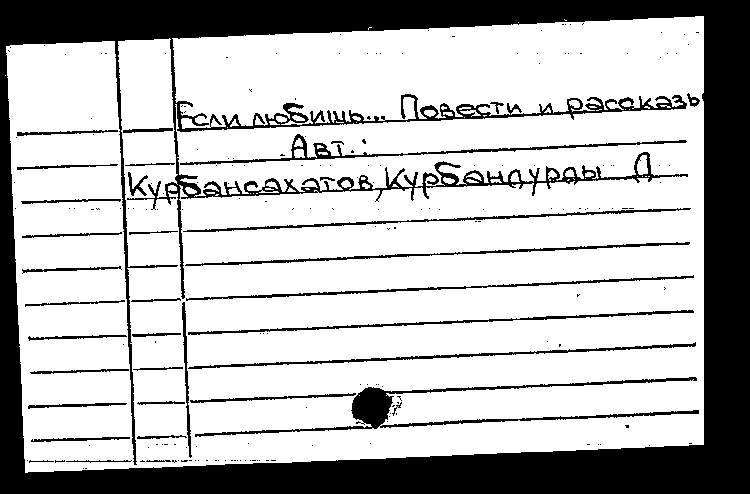 Если любишь... Повести и рассказы
Авт.:
Курбансахатов, Курбандурды Д